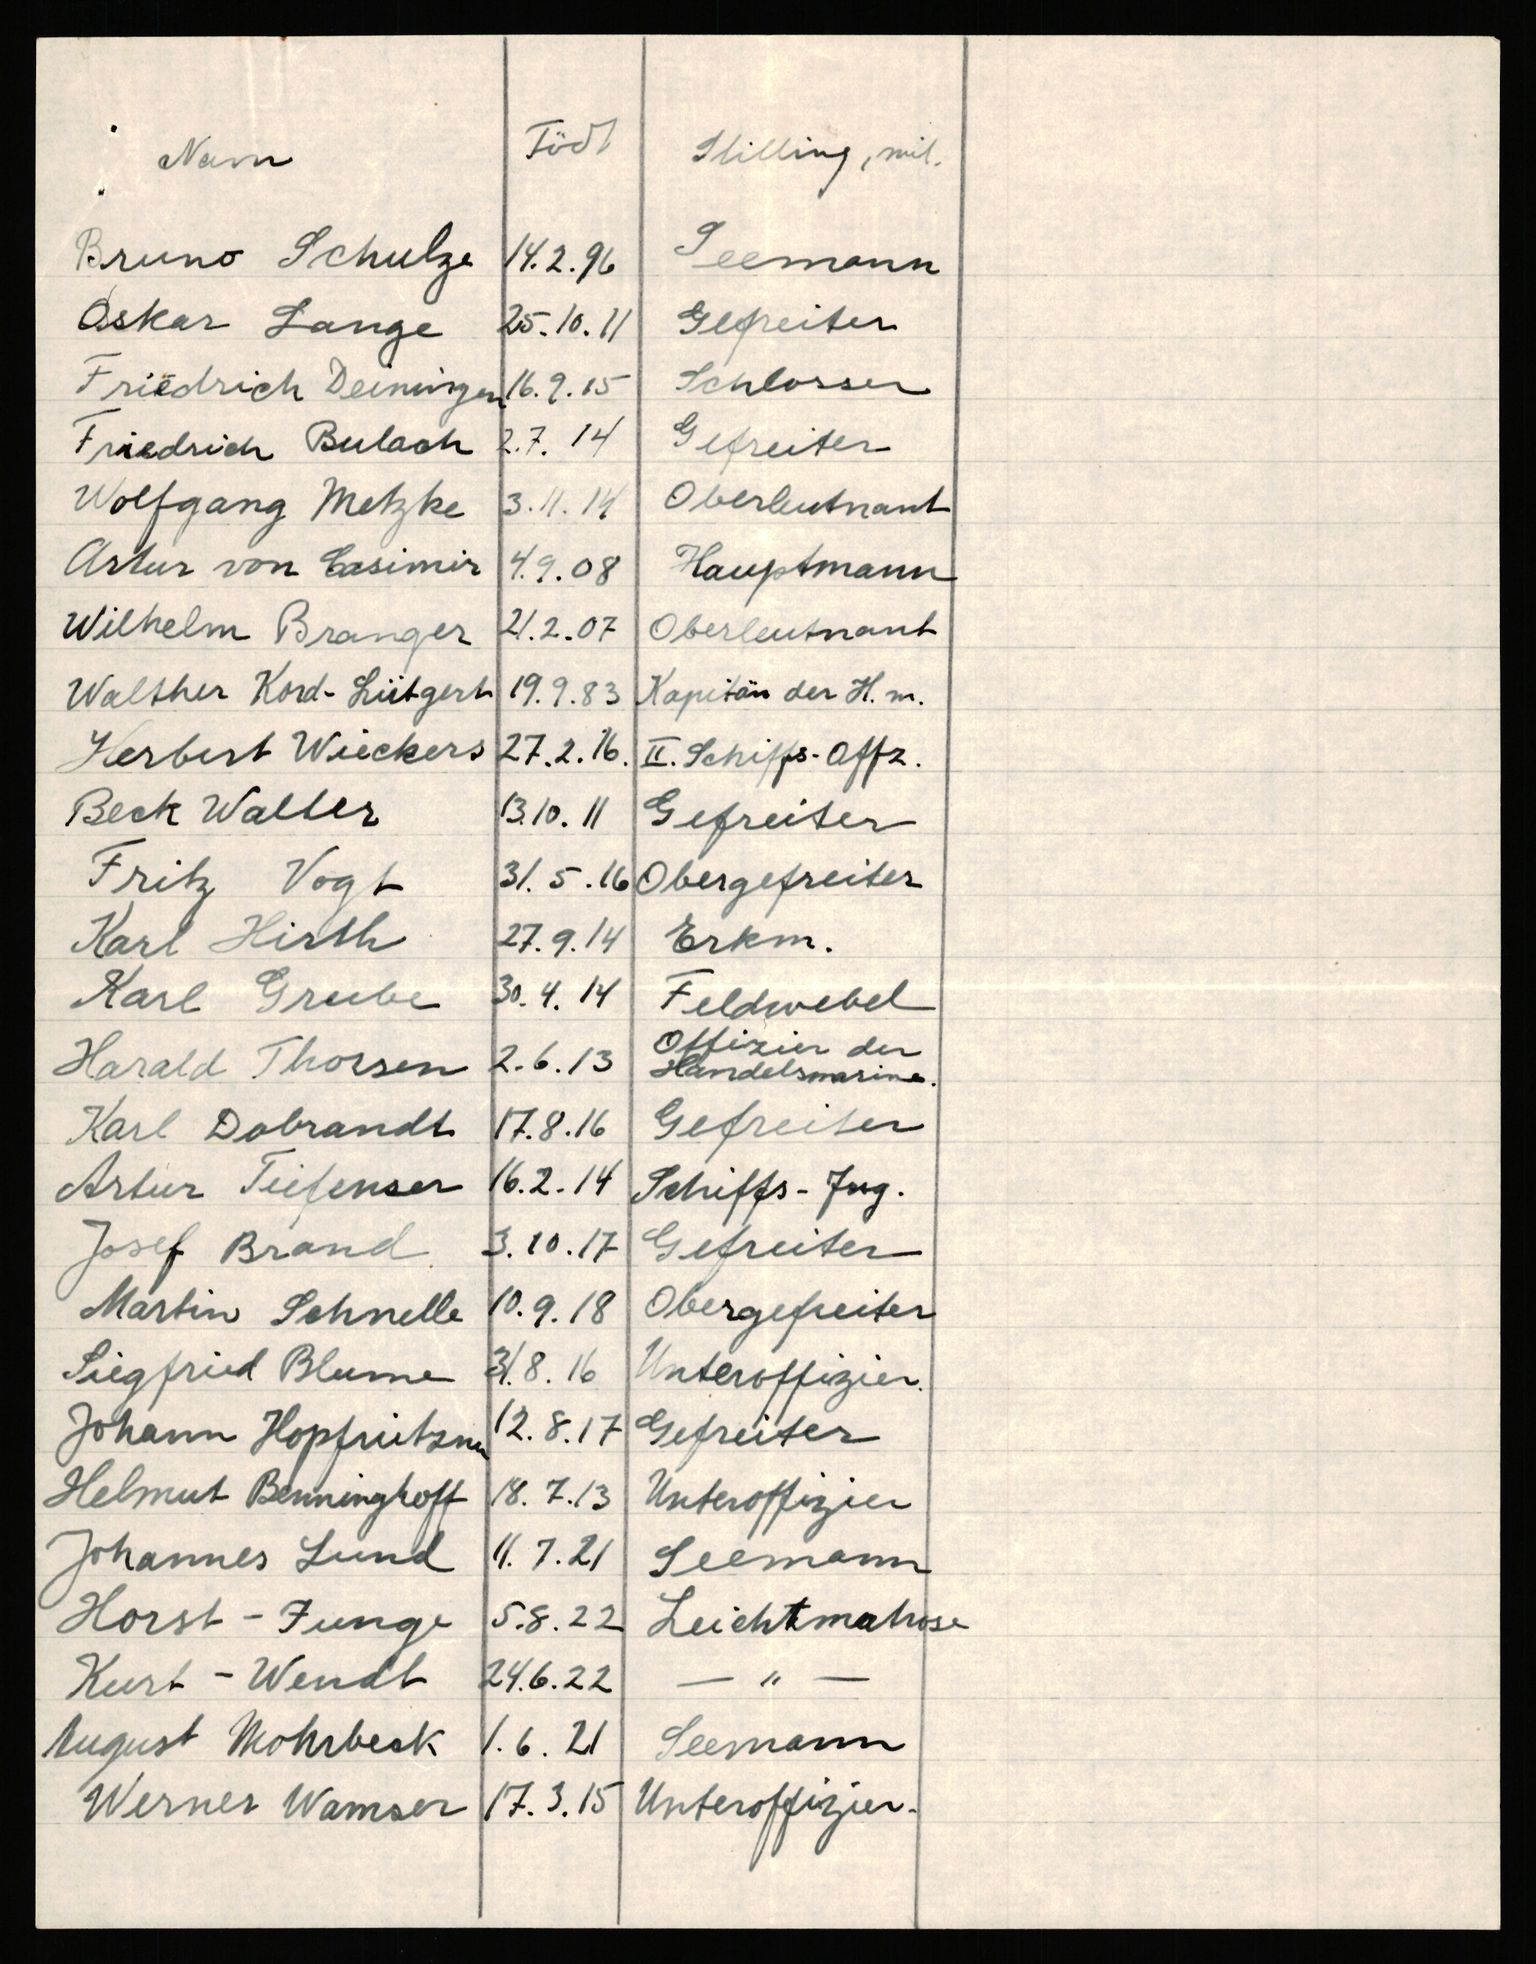 Navn Födt Stilling, mil.
Bruno Schulze 14.2.96 Seemann
Oskar Lange 25.10.11 Gefreiter
Friedrich Deininger 16.9.15 Schlosser
Friedrich Bulach 2.7.14 Gefreiter
Wolfgang Metzke 3.11.14 Oberleutnant
Artur von Casimir 4.9.08 Hauptmann
Wilhelm Branger 21.2.07 Oberleutnant
Walther Kord-Lütgert 19.9.83 Kapitän der H.m.
Herbert Wieckers 27.2.16. II. Schiffs-Offz.
Beck Walter 13.10.11 Gefreiter
Fritz Vogt 31.5.16 Obergefreiter
Karl Hirth 27.9.14 Erkm.
Karl Grube 30.4.14 Feldwebel
Harald Thorsen 2.6.13 Offizier der
Handelsmarine.
Karl Dobrandt 17.8.16 Gefreiter
Artur Tiefenser 16.2.14 Schiffs-Ing.
Josef Brand 3.10.17 Gefreiter
Martin Schnelle 10.9.18 Obergefreiter
Siegfried Blume 31.8.16 Unteroffizier.
Johann 12.8.17 Gefreiter
Helmut Benninghoff 18.7.13 Unteroffizier
Johannes Lund 11.7.21 Seemann
Horst - Junge 5.8.22 Leichtmatrose
Kurt - Wendt 24.6.22 — " —
August Mohrbeck 1.6.21 Seemann
Werner Wamser 17.3.15 Unteroffizier.